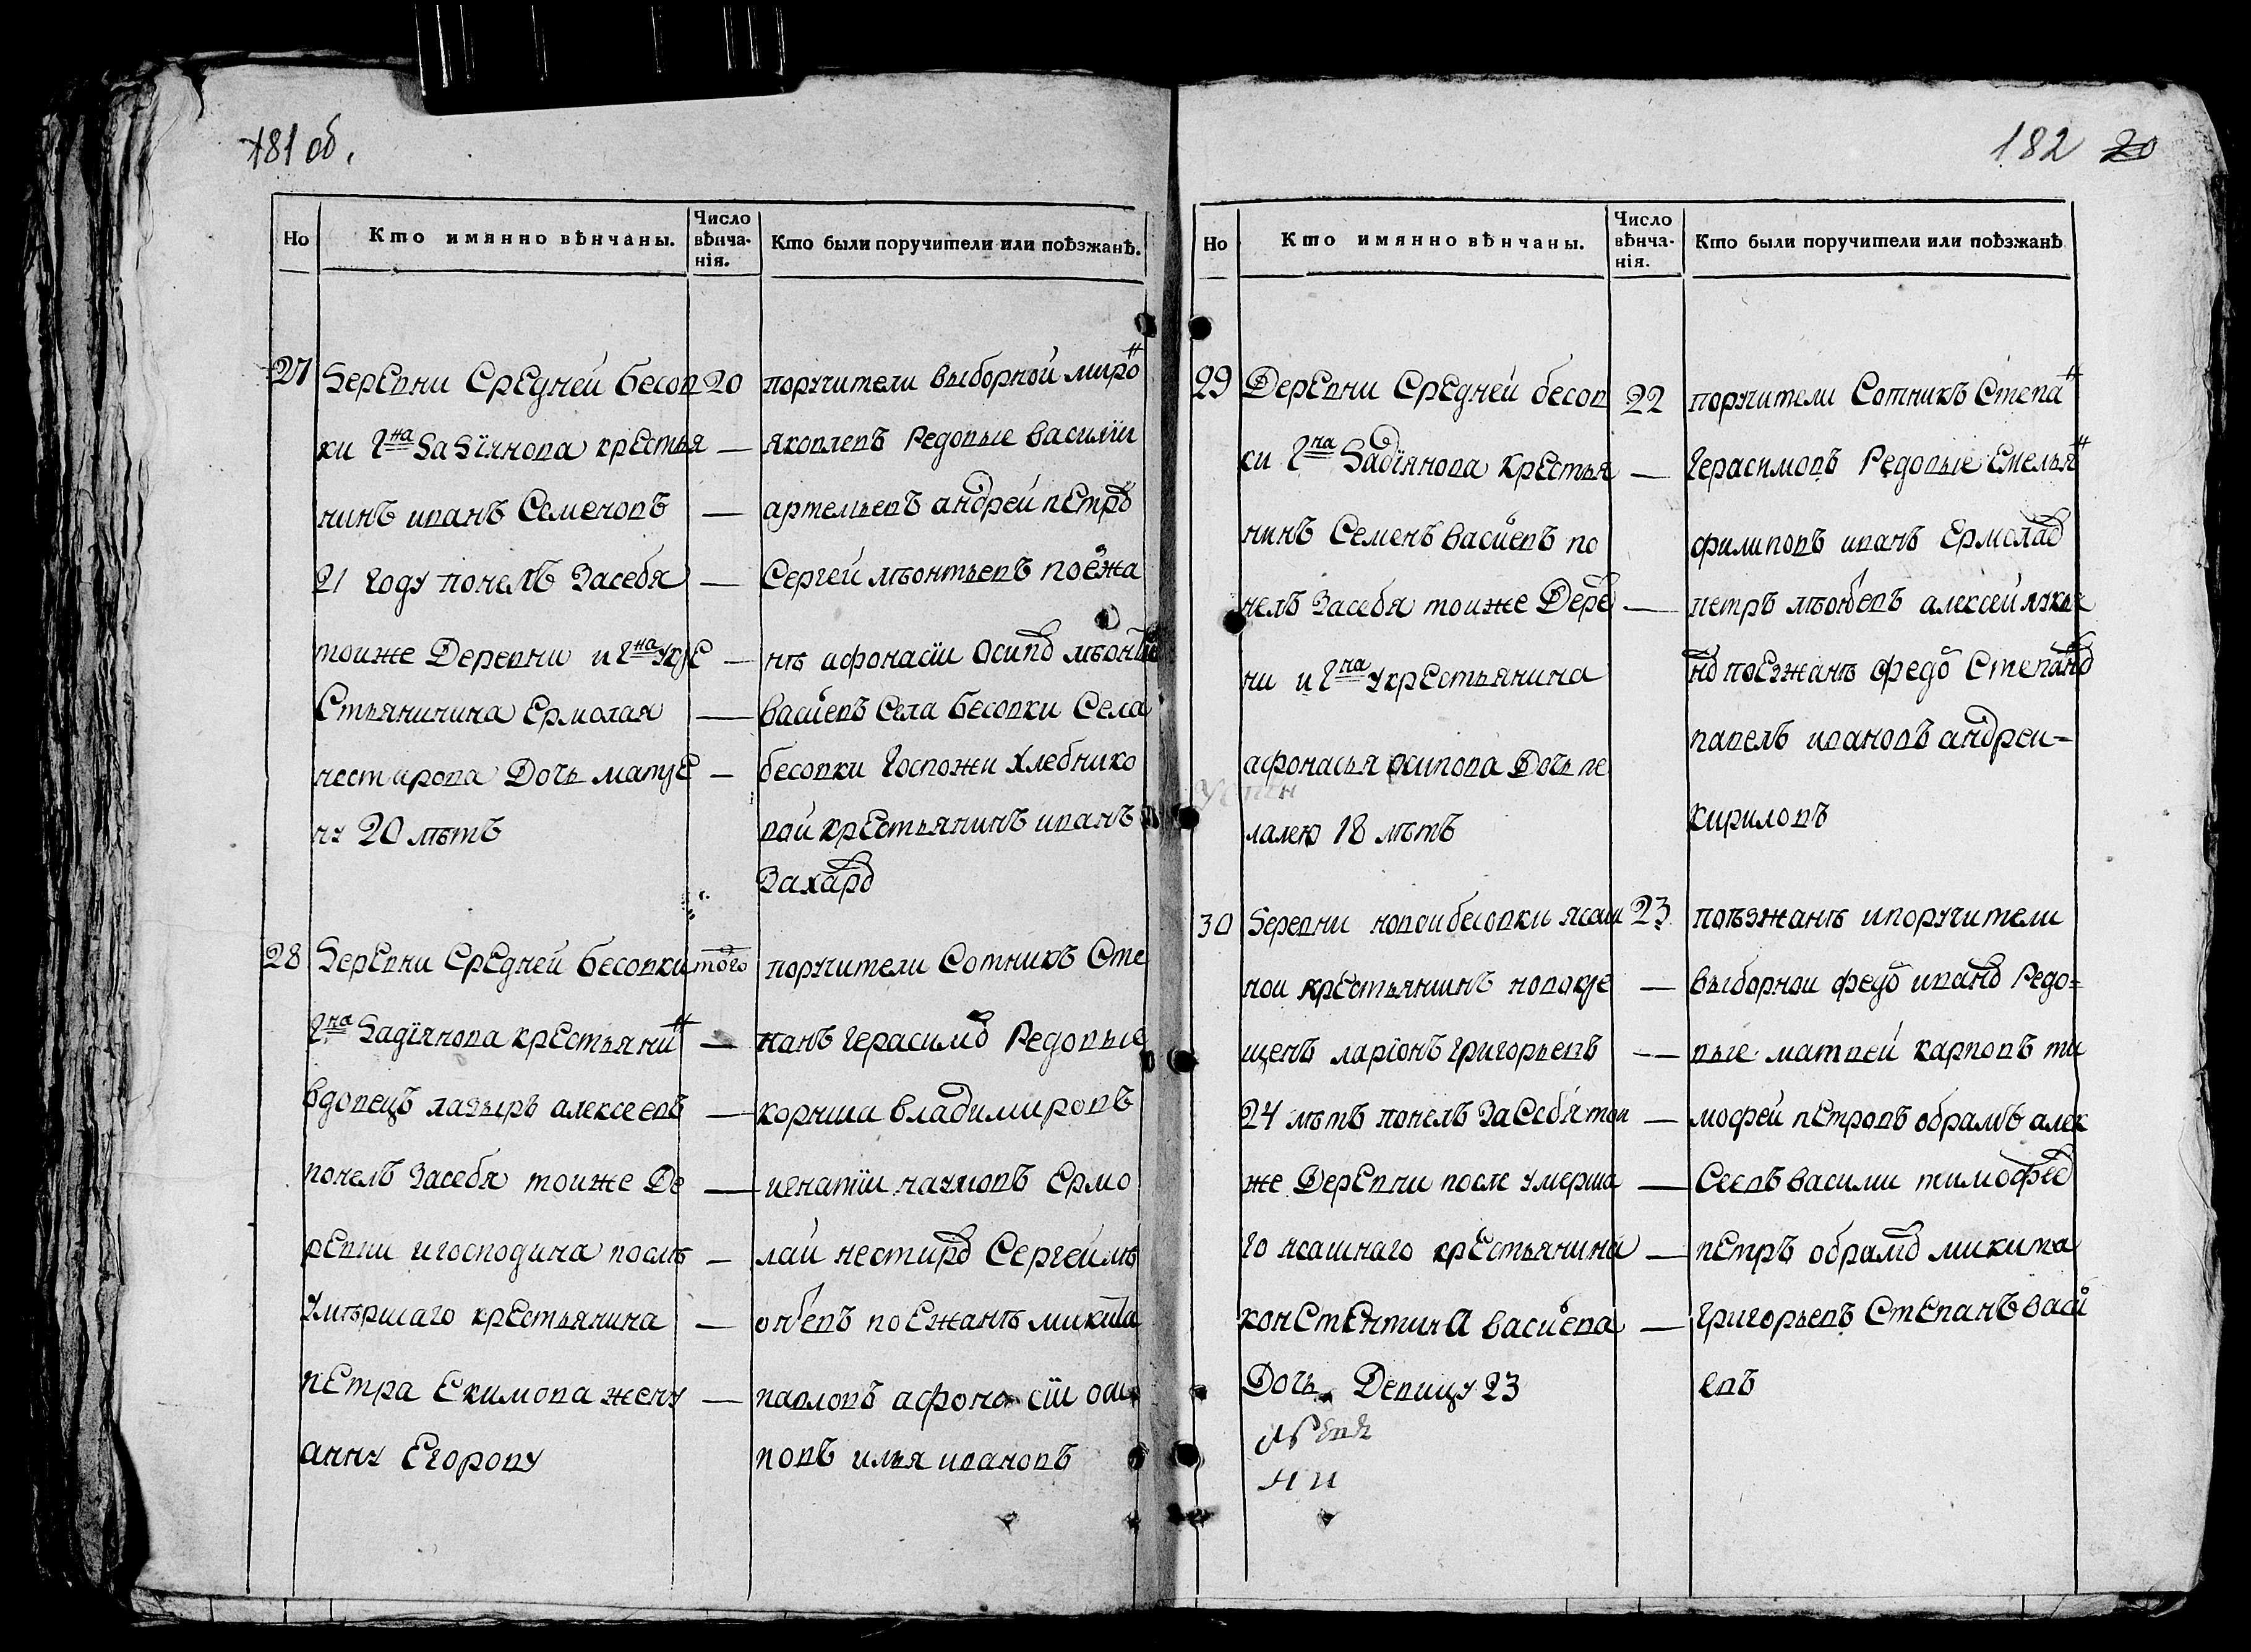 181 об.
Но
Кто имянно вѣнчаны.
Число вѣнча-нія.
Кто были поручители или поѣзжанѣ.
27 Деревни Средней бесов 20
ки гна Дадїянова крестья —
нинъ иванъ Семеновъ —
21 году понелъ Засебя —
тоиже Деревни и гна укре —
Стьянинина Ермолая —
нестирова Дочь матре —
ну 20 лѣтъ
поручители выборной миро
яковлевъ Редовые василїи
артемьевъ андрей петро
Сергей лѣонтьевъ поезжа
нѣ афонасїи Осипо лѣонть
васиевъ Села бесовки Села
бесовки Госпожи хлебнико
вой крестьянинъ иванъ
Захаро
28 Деревни Средней бесовки того
гна Дадїянова крестьяни —
вдовецъ лазырь алексеевъ —
понелъ Засебя тоиже Де —
ревни игосподина послѣ —
умѣршаго крестьянина —
петра Екимова жену —
анну Егорову
поручители Сотникъ Сте
панъ герасимо Редовые
корнша владимировъ
игнатїи наумовъ Ермо
лаи нестиро Сергеи лѣ
онтьевъ поежанѣ микита
павловъ афонасїи оси
повъ илья ивановъ
182 20
Но
Кто имянно вѣнчаны.
Число вѣнча-нія.
Кто были поручители или поѣзжанѣ
29 Деревни Средней бесов 22
ки гна Дадїянова крестья —
нинъ Семенъ васиевъ по
нелъ Засебя тоиже Дере —
ни и гна укрестьянина
афонасья осипова Дочь пе
лалею 18 лѣтъ
поручители Сотникъ Степа
Герасимовъ Редовые Емелья
филиповъ иванъ Ермолао
петръ лѣонтьевъ алексеи лукья
но поезжанѣ федо Степано
павелъ ивановъ андреи-
кириловъ
30 Деревни новои бесовки ясаш 23
нои крестьянинъ новокре —
щенъ ларїонъ григорьевъ —
24 лѣтъ понелъ Засебя тои —
же Деревни после умерша —
го ясашнаго крестьянина —
констентина васиева —
Дочь Девицу 23
поѣзжанѣ ипоручители
выборнои федо ивано Редо=
вые матвеи карповъ ти
мофеи петровъ обрамъ алек
Сеевъ васили тимофео
петръ обрамо микита
григорьевъ Степанъ васи
евъ